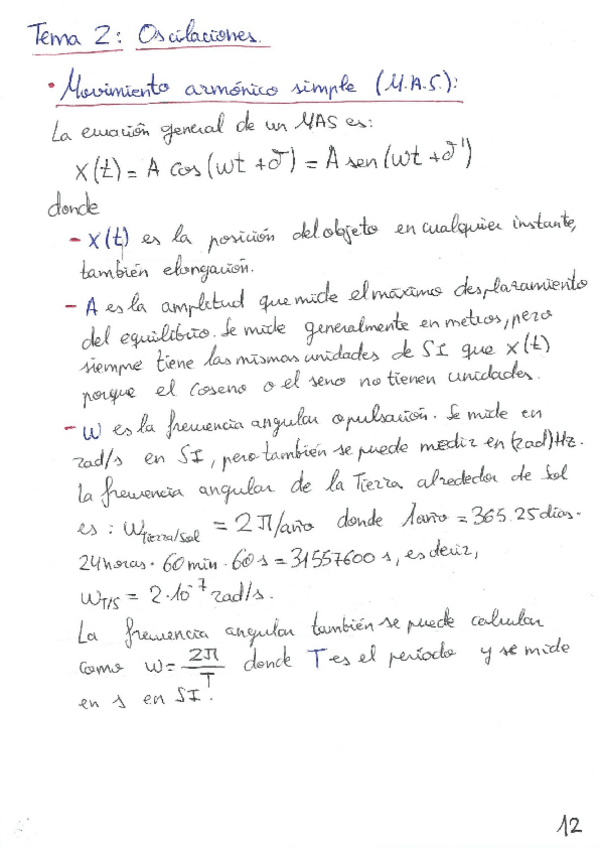 Tema 2: Oscilaciones.
• Movimiento armónico simple (M.A.S.):
La ecuación general de un MAS es:
X(t) = A cos(ωt + δ) = A sen(ωt + δ')
donde
- X(t) es la posición del objeto en cualquier instante,
también elongación.
- A es la amplitud que mide el máximo desplazamiento
del equilibrio. Se mide generalmente en metros, pero
siempre tiene las mismas unidades de SI que x(t)
porque el coseno o el seno no tienen unidades.
- ω es la frecuencia angular o pulsación. Se mide en
rad/s en SI, pero también se puede medir en (rad)Hz.
La frecuencia angular de la Tierra alrededor de Sol
es: ω Tierra/Sol = 2π/año donde 1año = 365.25 días·
24horas · 60 min · 60 s = 31557600 s, es decir,
ω T/S = 2·10⁻⁷ rad/s.
La frecuencia angular también se puede calcular
como ω = 2π/T donde T es el período y se mide
en s en SI.
12